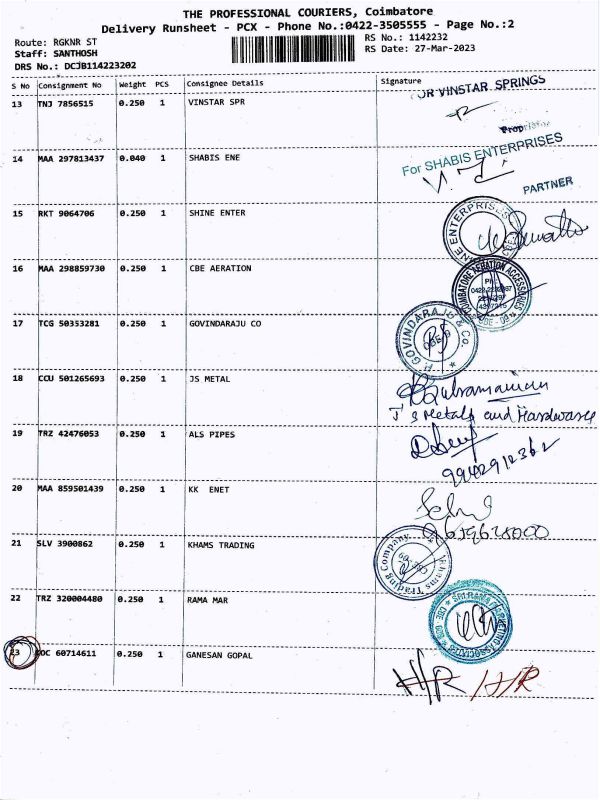 THE PROFESSIONAL COURIERS, Coimbatore
Delivery Runsheet - PCX - Phone No.:0422-3505555 - Page No.:2
Route: RGKNR ST
RS No.: 1142232
Staff: SANTHOSH
RS Date: 27-Mar-2023
DRS No.: DCJB114223202
S No Consignment No Weight PCS Consignee Details Signature
13 TNJ 7856515 0.250 1 VINSTAR SPR
FOR VINSTAR SPRINGS
Proprietor
14 MAA 297813437 0.040 1 SHABIS ENE
For SHABIS ENTERPRISES
PARTNER
15 RKT 9064706 0.250 1 SHINE ENTER
ENTERPRISES
16 MAA 298859730 0.250 1 CBE AERATION
COIMBATORE AERATION ACCESSORIES
17 TCG 50353281 0.250 1 GOVINDARAJU CO
P. GOVINDARAJU & Co.
18 CCU 501265693 0.250 1 JS METAL
Subramanian
J S Metals and Hardwares
19 TRZ 42476053 0.250 1 ALS PIPES
9942912362
20 MAA 859501439 0.250 1 KK ENET
21 SLV 3900862 0.250 1 KHAMS TRADING
Khams Trading Company
22 TRZ 320004480 0.250 1 RAMA MAR
23 COC 60714611 0.250 1 GANESAN GOPAL
H/R H/R